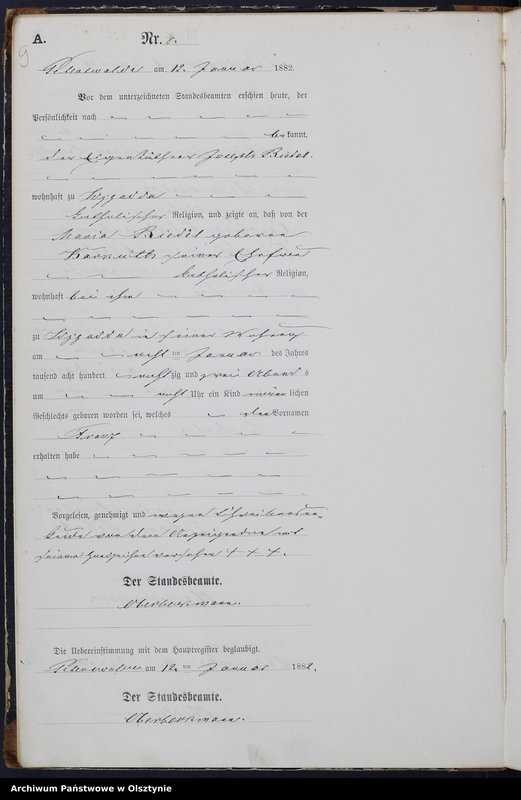 A. Nr. 8.
9
am 12. Januar 1882.
Vor dem unterzeichneten Standesbeamten erschien heute, der
Persönlichkeit nach
bekannt,
der Eigenkäthner Joseph Riedel
wohnhaft zu
katholischer Religion, und zeigte an, daß von der
Maria Riedel geborene
seiner Ehefrau
katholischer Religion,
wohnhaft bei ihm
zu in seiner Wohnung
am acht ten Januar des Jahres
tausend acht hundert achtzig und zwei Abends
um acht Uhr ein Kind männlichen
Geschlechts geboren worden sei, welches den Vornamen
Franz
erhalten habe
Vorgelesen, genehmigt und wegen Schreibensun-
kunde von dem Anzeigenden mit
seinem Handzeichen versehen + + +.
Der Standesbeamte.
Die Uebereinstimmung mit dem Hauptregister beglaubigt.
am 12. ten Januar 1882.
Der Standesbeamte.
Archiwum Państwowe w Olsztynie